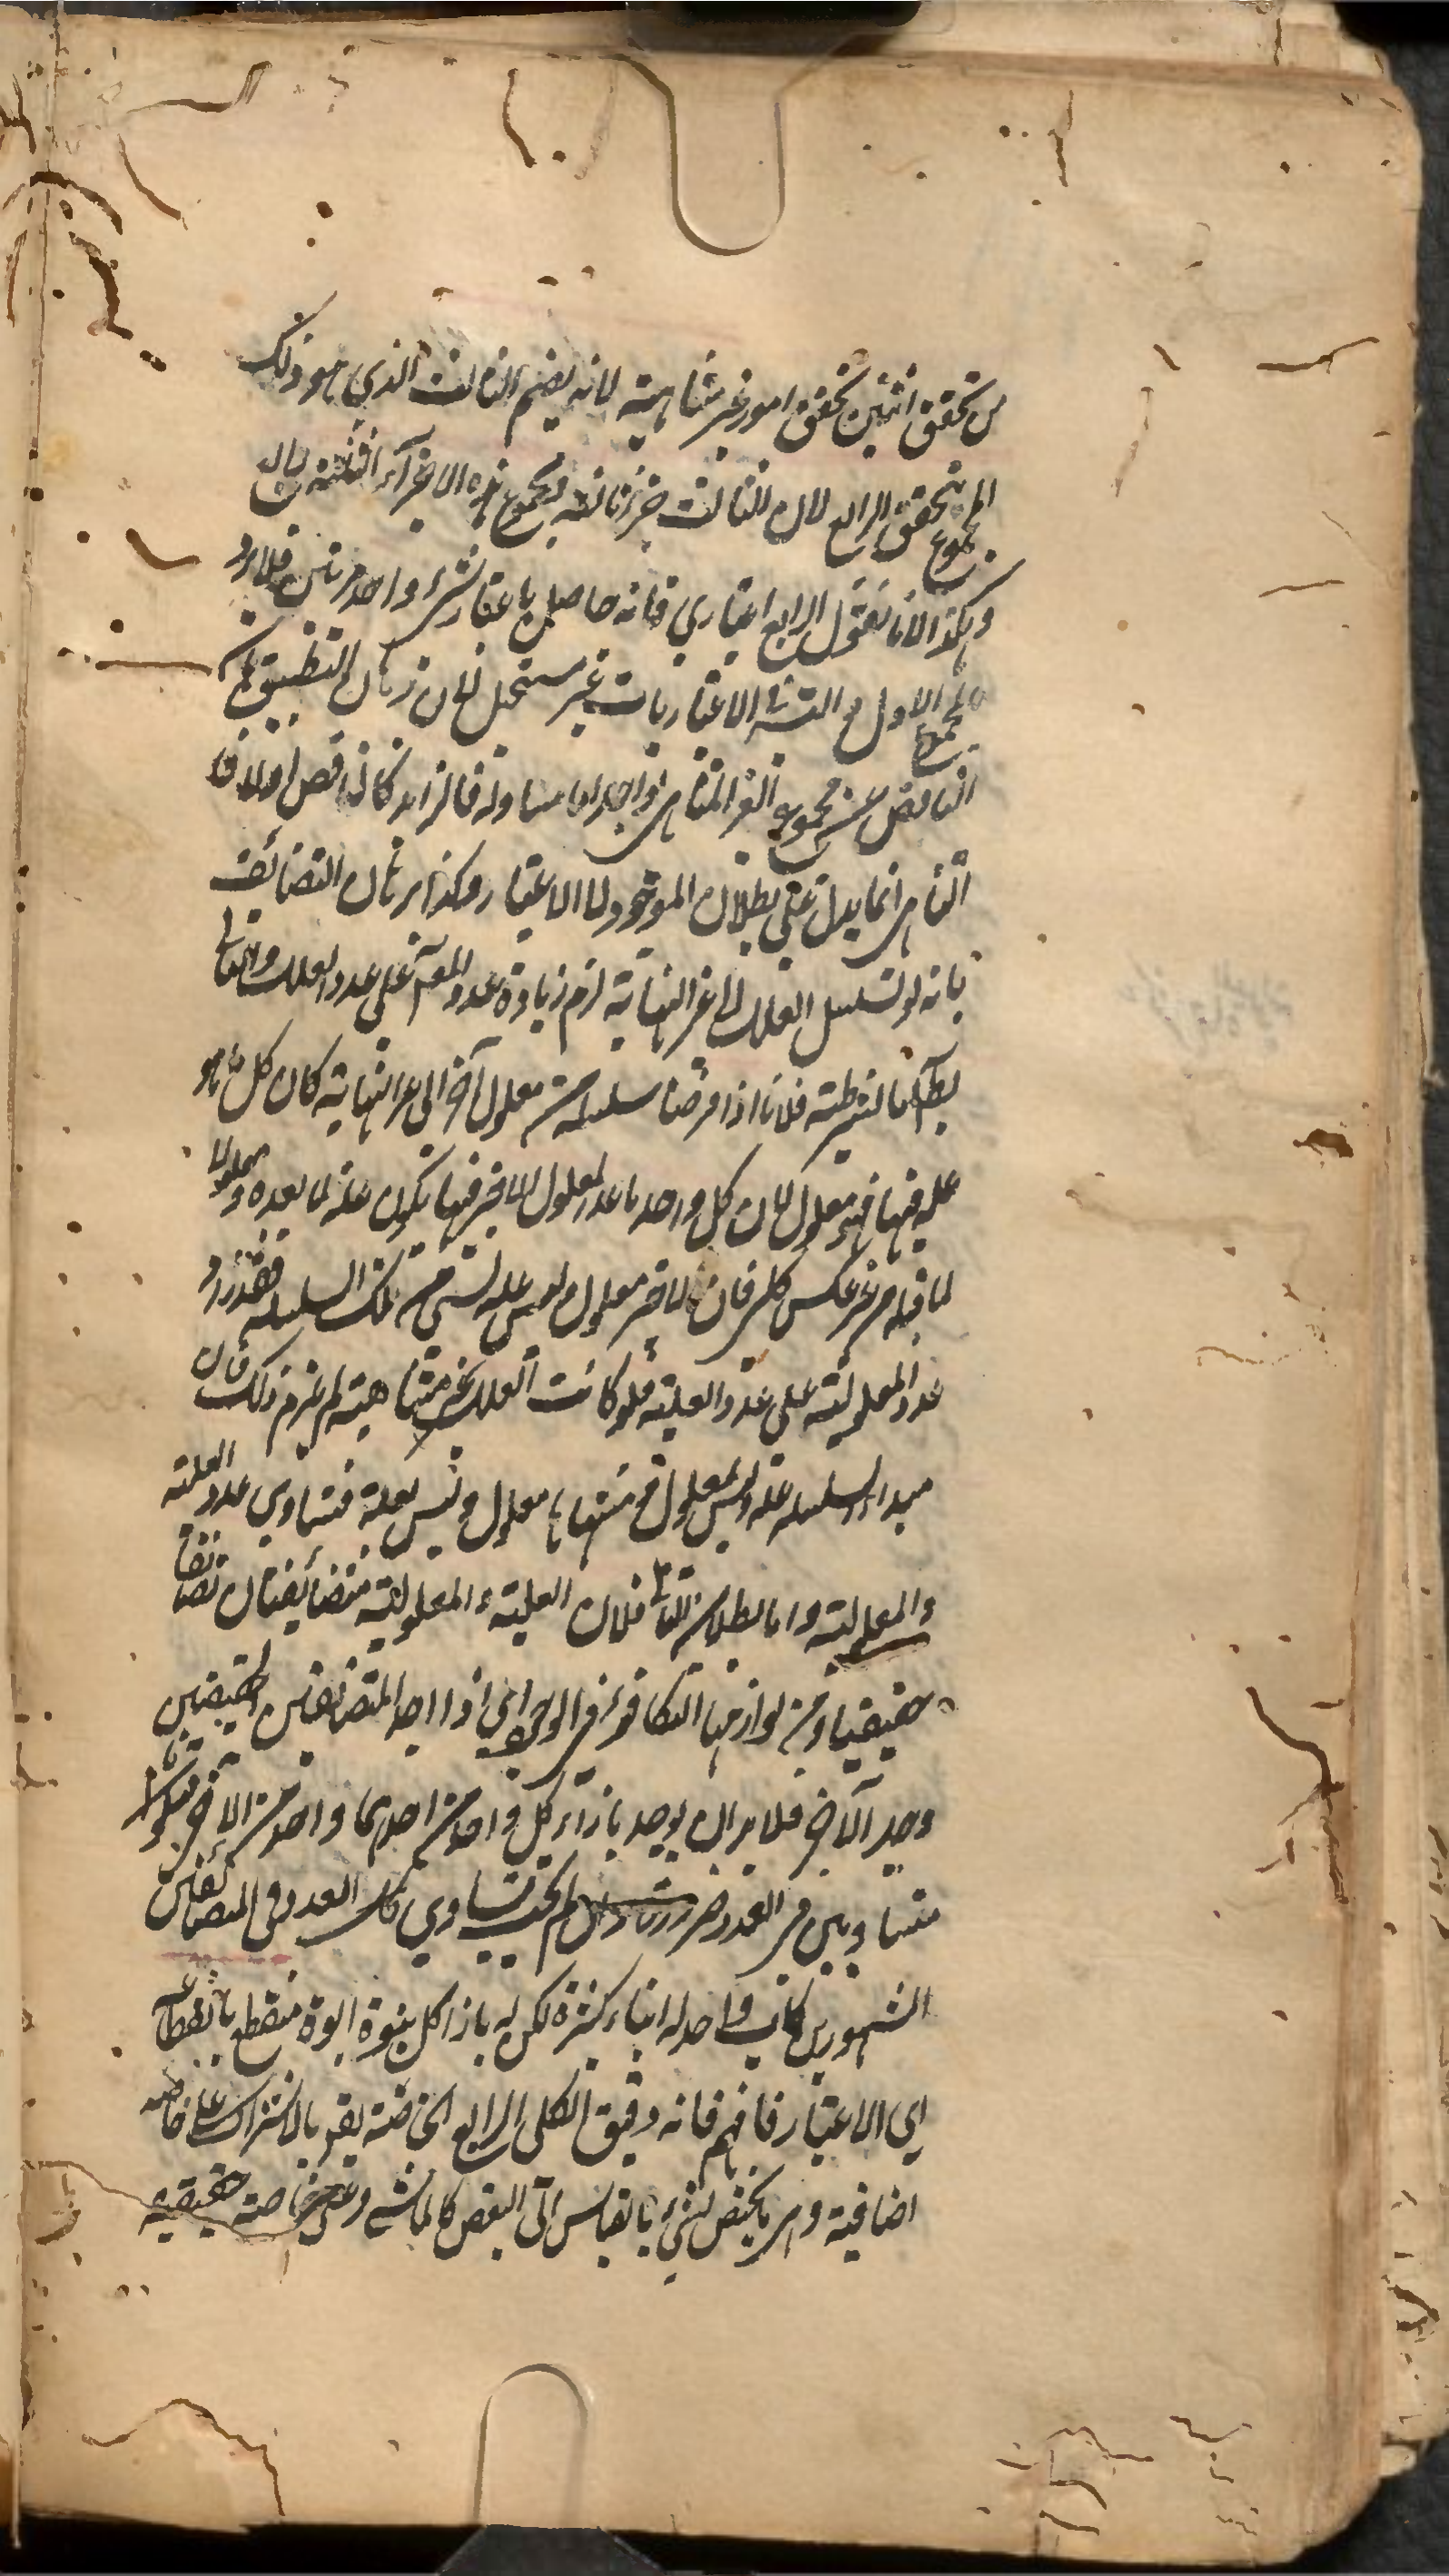 من تحقق اثنين تحقق امور غير متناهية لانه يضم الثالث الذي هو ذلك
المجموع يتحقق الرابع لان الثالث جزء ثالثه فمجموع هذه الاجزاء الثلثة
وهكذا لانا نقول الرابع اعتباري فانه حاصل باعتبار شيء واحد مرتين فلا يرد
المجموع الاول و التس في الاعتباريات غير مستحيل لان برهان التطبيق
الناقص مجموع الغير المتناهي فالزائد كالناقص اولا
التناهي انما يدل على بطلان الموجود لا الاعتبار وهكذا برهان التضائف
بانه لو تسلسل العلل الى غير النهاية لزم زيادة عدد المعلو على عدد العلل والتالي
بط اما الشرطية فلانا اذا فرضنا سلسلة من معلول آخر الى غير النهاية كان كل ما هو
علة فيها فهو معلول لان كل واحد ما عدا المعلول الاخير فيها يكون علة لما بعده ومعلولا
لما قبله من غير عكس كلي فان الاخير معلول وليس علة لشيء من تلك السلسلة فقد زاد
عدد المعلولية على عدد العلية فلو كانت العلل غير متناهية لم يلزم ذلك فان
مبداء السلسلة علة وليس بمعلول ومنتهاها معلول وليس بعلة فتساوي عدد العلية
والمعلولية واما بطلان التالي فلان العلية والمعلولية متضائفتان تضائفا
حقيقيا ومن لوازمها التكافوء في الوجود اي اذا وجد احد المتضائفين الحقيقيين
وجد الآخر فلا بد ان يوجد بازاء كل واحد من احدهما واحد من الآخر فيكونا
متساويين في العدد ضرورة وان لم يجب تساوي تلك العدد في المتضائفين
المشهورين كاب واحد له ابناء كثيرة لكن له بازاء كل بنوة ابوة منقطع بانقطاعه
اي الاعتبار فافهم فانه دقيق الكلي الرابع الخاصة يقع بالاشتراك على خاصة
اضافية وهي ما يختص لشيء بالقياس الى البعض كالماشي وعلى خاصة حقيقية